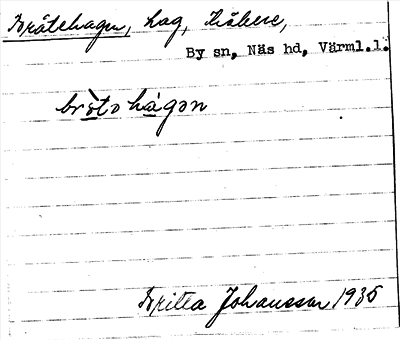 Bråtehagen, hag, Kibere,
By sn, Näs hd, Värml.l.
bròtə hágən
Britta Johansson 1935